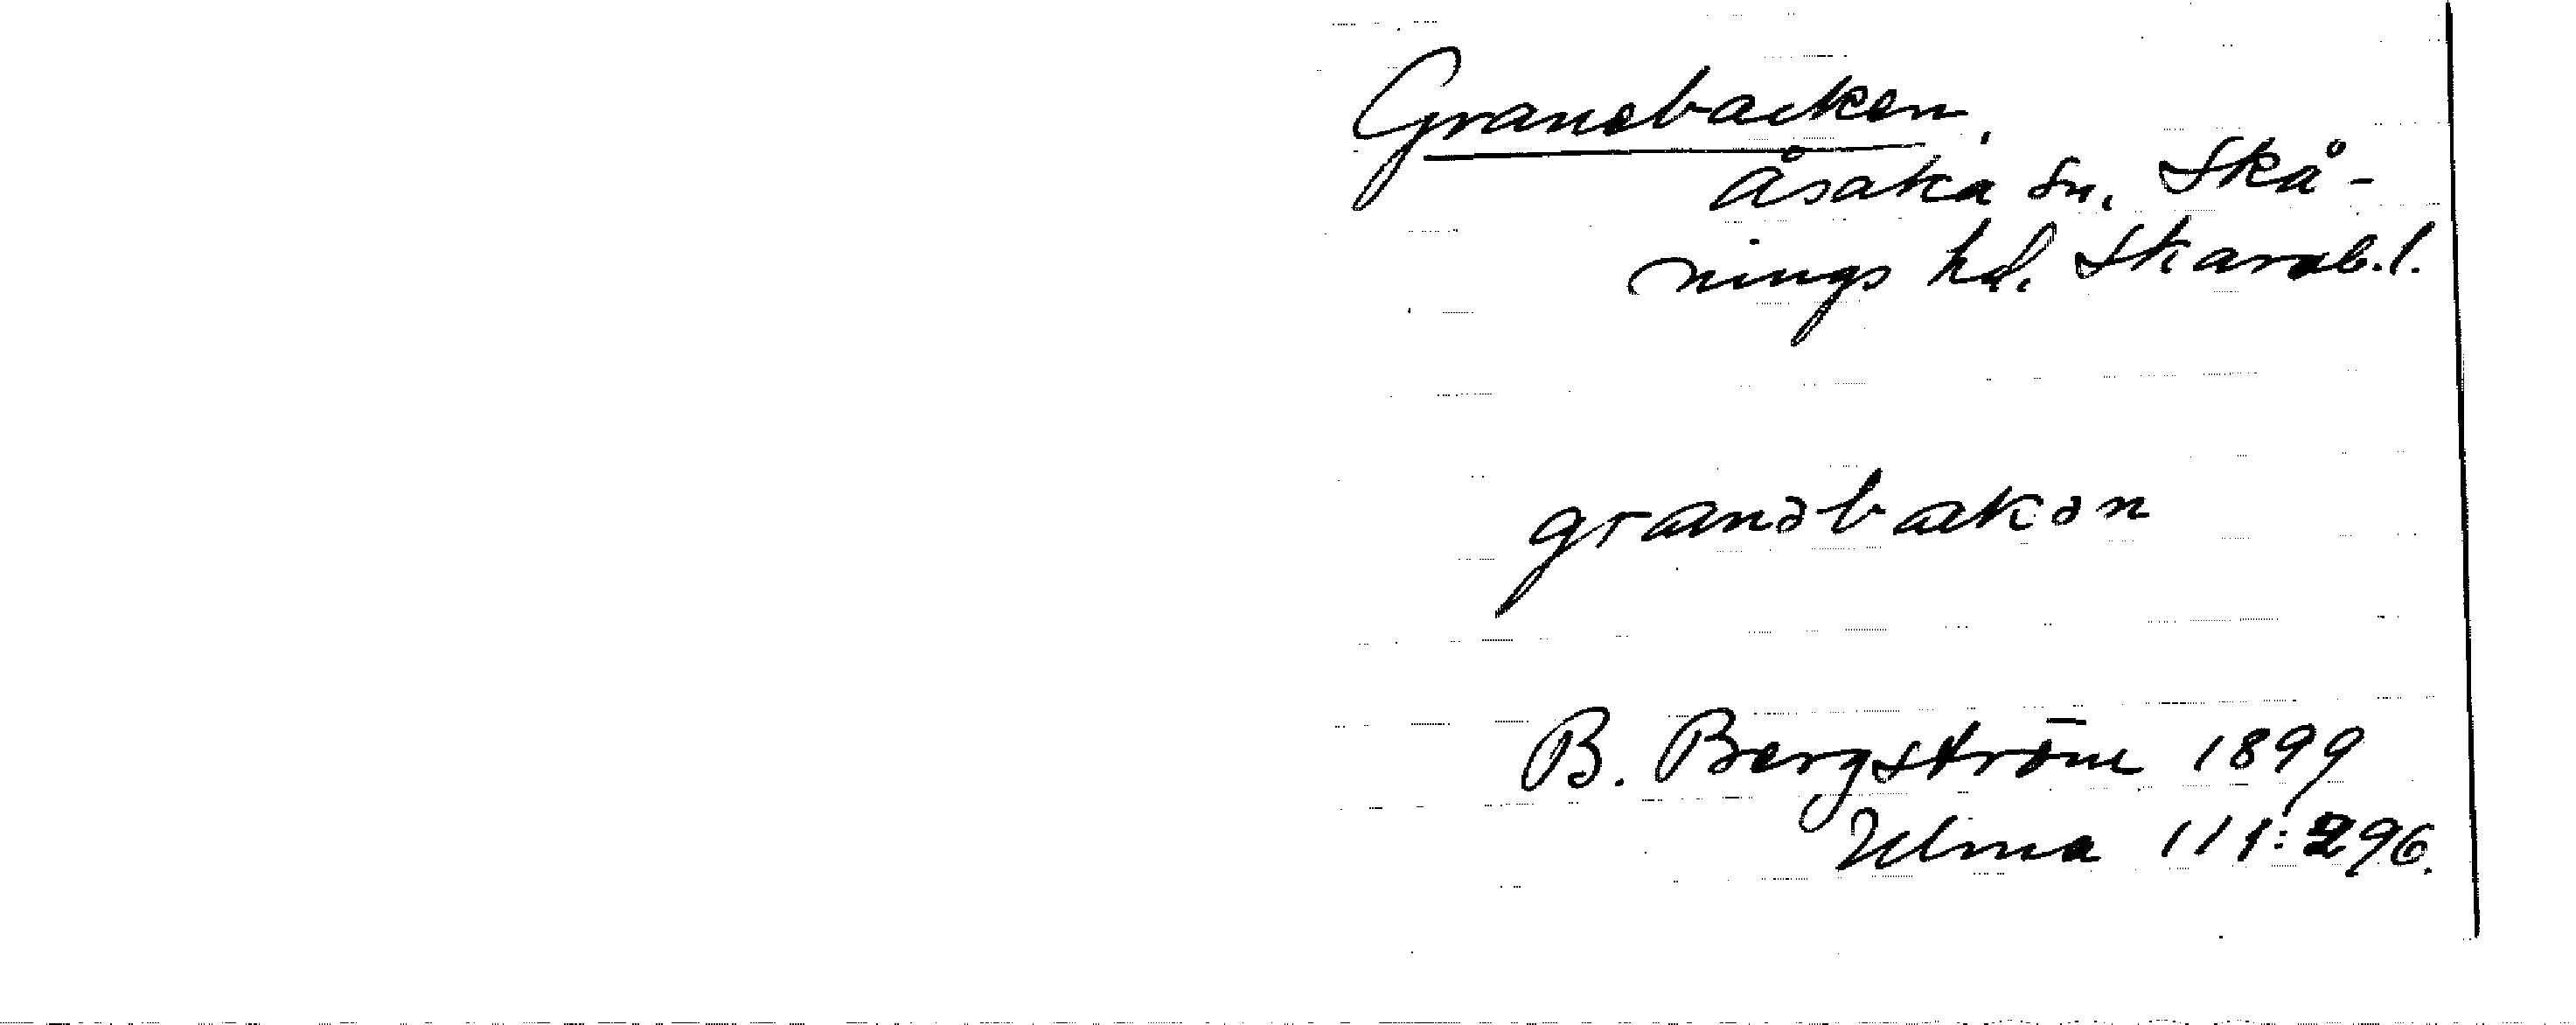 Granebacken,
Åsaka sn. Skå-
nings hd. Skarab.l.
granəbakən
B. Bergström 1899
Ulma 111:296.